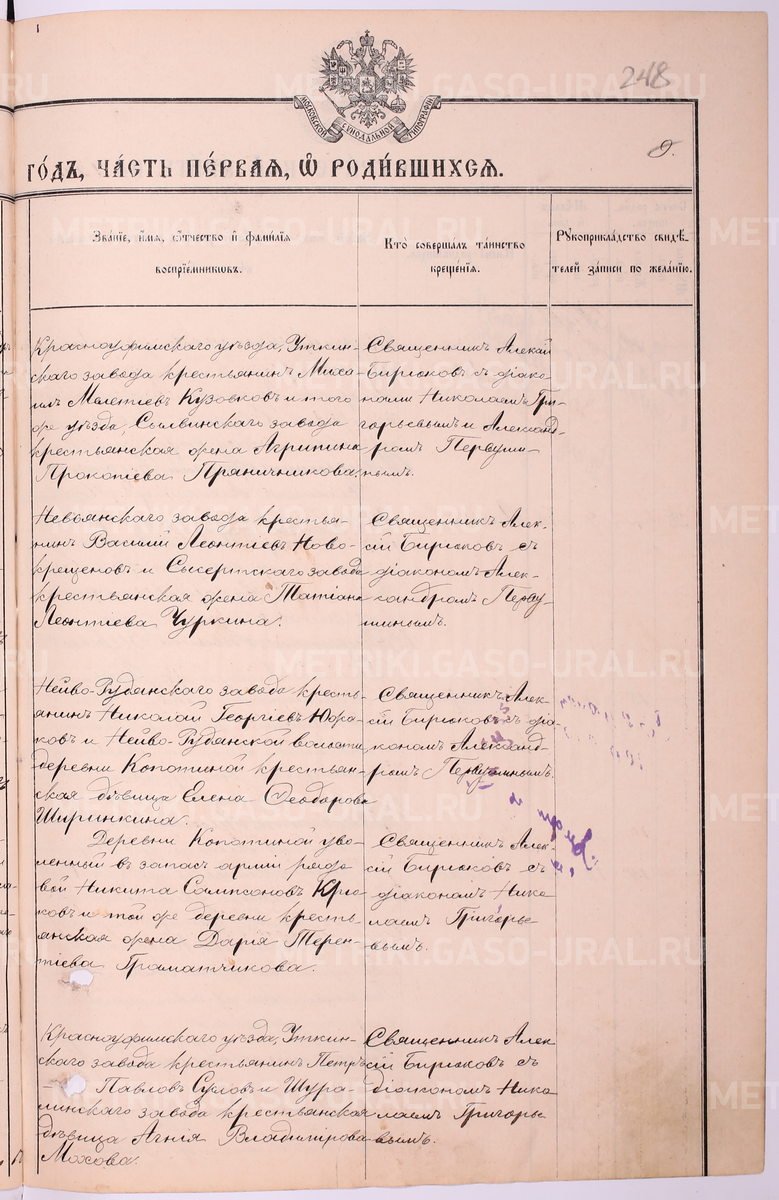 248
МОСКОВСКОЙ СѴНОДАЛЬНОЙ ТИПОГРАФІИ
9.
го́дъ, ча́сть пе́рвая, ѡ҆ роди́вшихся.
Зва́нїе, и҆́мя, ѻ҆́тчество и҆ фами́лїя
воспрїе́мниковъ.
Кто̀ соверша́лъ та́инство
креще́нїя.
Рꙋкоприкла́дство свидѣ́-
телей за́писи по жела́нїю.
Красноуфимскаго уѣзда, Уткин-
скаго завода крестьянинъ Миха-
илъ Мелетіевъ Кузовковъ и того
же уѣзда, Сылвинскаго завода
крестьянская жена Агрипина
Прокопіева Пряничникова.
Священникъ Алексій
Бирюковъ съ діако-
нами Николаемъ Гри-
горьевымъ и Александ-
ромъ Первуши-
нымъ.
Невьянскаго завода крестья-
нинъ Василій Леонтіевъ Ново-
крещеновъ и Сысертскаго завода
крестьянская жена Татіана
Леонтіева Чуркина.
Священникъ Алек-
сій Бирюковъ съ
діакономъ Алек-
сандромъ Перву-
шинымъ.
Нейво-Рудянскаго завода кресть-
янинъ Николай Георгіевъ
и Нейво-Рудянской волости
деревни Копотиной крестьян-
ская дѣвица Елена Ѳеодорова
Ширинкина.
Священникъ Алек-
сій Бирюковъ съ діа-
кономъ Александ-
ромъ Первушинымъ.
Деревни Копотиной уво-
ленный въ запасъ арміи рядо-
вой Никита Сампсоновъ Крю-
ковъ и той же деревни кресть-
янская жена Дарія Терен-
тіева Граматчикова.
Священникъ Алек-
сій Бирюковъ съ
діакономъ Нико-
лаемъ Григорье-
вымъ.
Красноуфимскаго уѣзда, Уткин-
скаго завода крестьянинъ Петръ
Павловъ Сусловъ и Шура-
линскаго завода крестьянская
дѣвица Агнія Владимірова
Мохова.
Священникъ Алек-
сій Бирюковъ съ
діакономъ Нико-
лаемъ Григорье-
вымъ.
METRIKI.GASO-URAL.RU